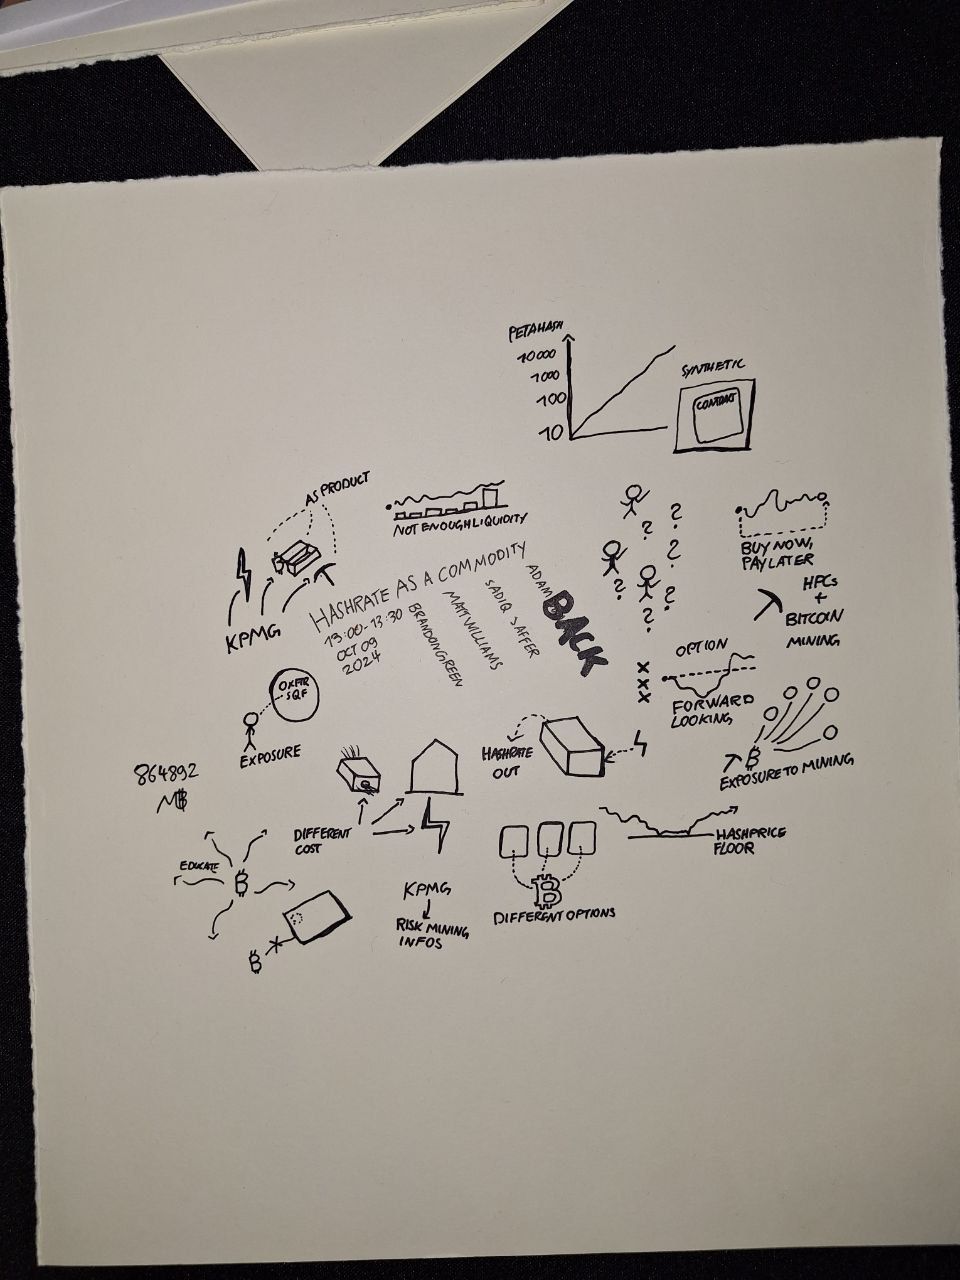 PETAHASH
10000
1000
100
10
SYNTHETIC
CONTRACT
AS PRODUCT
KPMG
NOT ENOUGH LIQUIDITY
HASHRATE AS A COMMODITY
13:00-13:30
OCT 09
2024
BRANDON GREEN
MATT WILLIAMS
SADIQ SAFFER
ADAM BACK
?
?
?
?
?
?
BUY NOW,
PAY LATER
HPCs
+
BITCOIN
MINING
OPTION
x
x
x
FORWARD
LOOKING
EXPOSURE
864892
HASHRATE
OUT
₿
EXPOSURE TO MINING
DIFFERENT
COST
HASHPRICE
FLOOR
EDUCATE
₿
₿
KPMG
RISK MINING
INFOS
₿
DIFFERENT OPTIONS